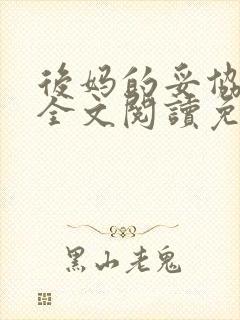 後妈的妥協
全文閱讀免
黑山老鬼